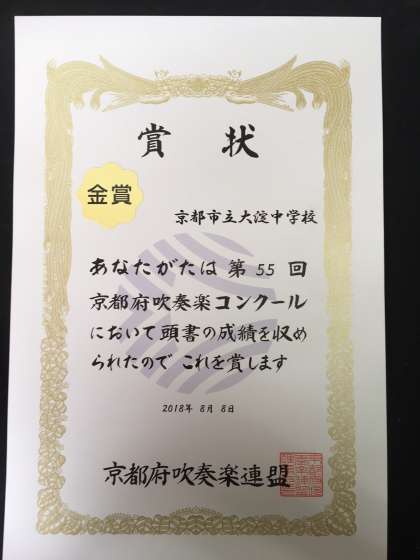 賞状
金賞
京都市立大淀中学校
あなたがたは第55回
京都府吹奏楽コンクール
において頭書の成績を収め
られたので これを賞します
2018年 8月 8日
京都府吹奏楽連盟